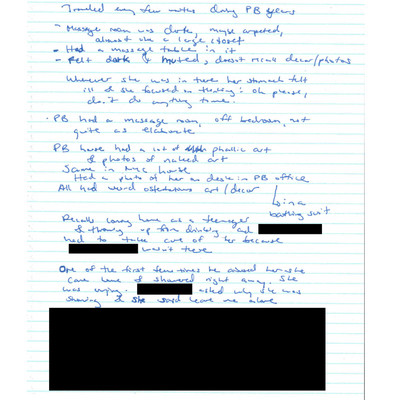 Traveled every few months during PB years
- Massage room was dark, maybe carpeted,
almost like a large closet
- Had a massage table in it
- Felt dark & muted, doesn't recall decor/photos
Whenever she was in there her stomach felt
ill & she focused on thinking: oh please,
don't do anything
- PB had a massage room, off bedroom, not
quite as elaborate
PB house had a lot of phallic art
& photos of naked art
Same in NYC house
Had a photo of her on desk in PB office
All had weird ostentatious art/decor
in a
bathing suit
Recalls coming home as a teenager
& throwing up from drinking and
had to take care of her because
wasn't there
One of the first few times he abused her she
came home & showered right away. She
was crying. asked why she was
showing & she said leave me alone